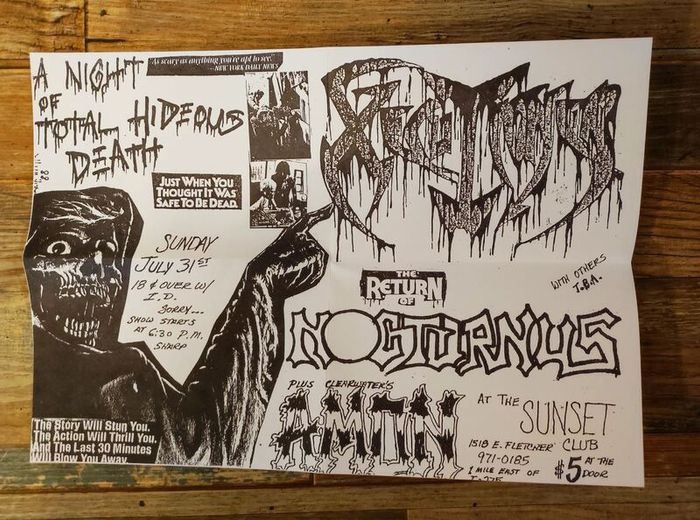 A NIGHT
OF
TOTAL HIDEOUS
DEATH
"As scary as anything you're apt to see."
—NEW YORK DAILY NEWS
88
JUST WHEN YOU
THOUGHT IT WAS
SAFE TO BE DEAD.
SUNDAY
JULY 31ST
18 & OVER W/
I.D.
SORRY...
SHOW STARTS
AT 6:30 P.M.
SHARP
The Story Will Stun You.
The Action Will Thrill You.
And The Last 30 Minutes
Will Blow You Away.
THE
RETURN
OF
WITH OTHERS
T.B.A.
NOCTURNUS
PLUS CLEARWATER'S
AMON
AT THE SUNSET
CLUB
1518 E. FLETCHER
971-0185
1 MILE EAST OF
I-275
$5 AT THE
DOOR